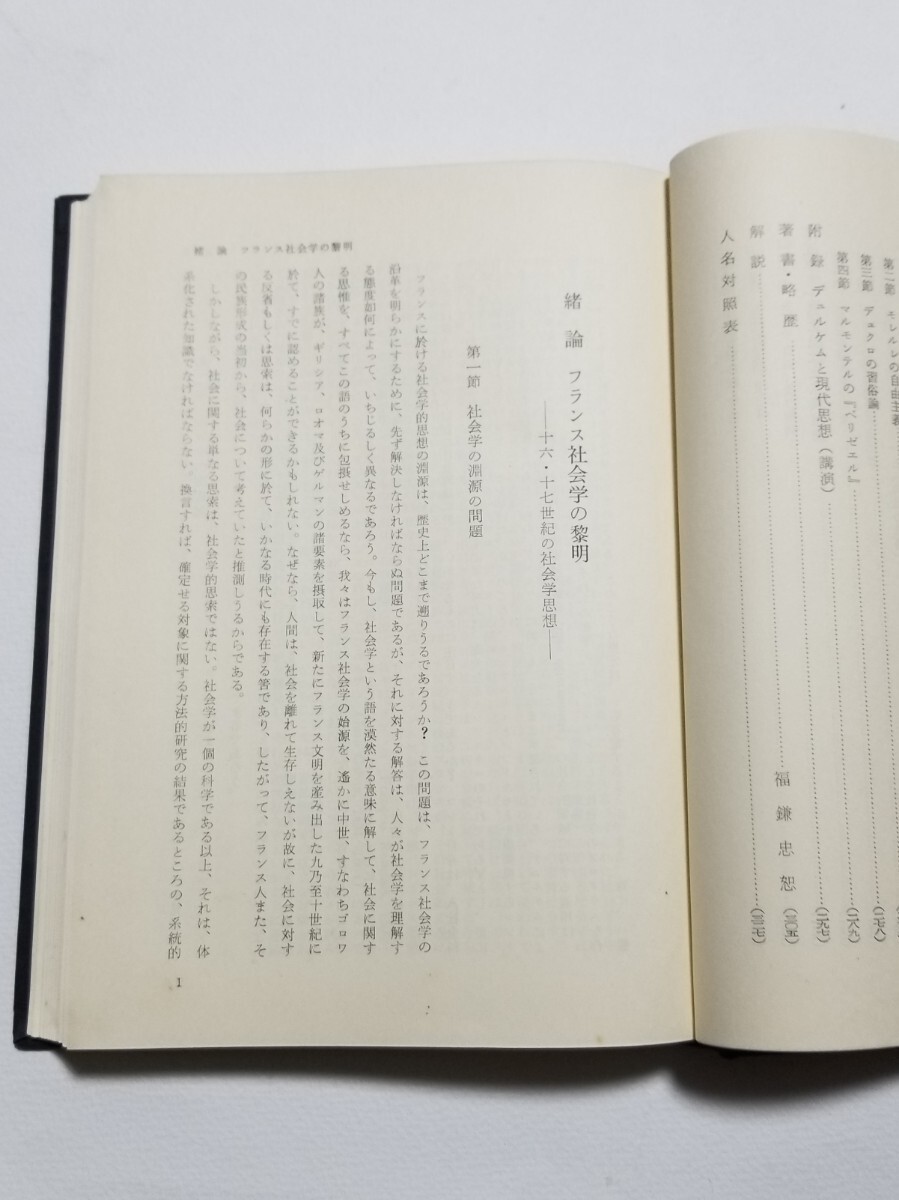 第二節 モレルレの自由主義
第三節 デュクロの習俗論
第四節 マルモンテルの『ベリゼエル』……(二八九)
附録 デュルケムと現代思想(講演)……(二九七)
著書・略歴……(三〇五)
解説……福鎌忠恕(三二七)
人名対照表
緒論 フランス社会学の黎明
――十六・十七世紀の社会学思想――
第一節 社会学の淵源の問題
フランスに於ける社会学的思想の淵源は、歴史上どこまで遡りうるであろうか? この問題は、フランス社会学の
沿革を明らかにするために、先ず解決しなければならぬ問題であるが、それに対する解答は、人々が社会学を理解す
る態度如何によって、いちじるしく異なるであろう。今もし、社会学という語を漠然たる意味に解して、社会に関す
る思惟を、すべてこの語のうちに包摂せしめるなら、我々はフランス社会学の始源を、遙かに中世、すなわちゴロワ
人の諸族が、ギリシア、ロオマ及びゲルマンの諸要素を摂取して、新たにフランス文明を産み出した九乃至十世紀に
於て、すでに認めることができるかもしれない。なぜなら、人間は、社会を離れて生存しえないが故に、社会に対す
る反省もしくは思索は、何らかの形に於て、いかなる時代にも存在する筈であり、したがって、フランス人また、そ
の民族形成の当初から、社会について考えていたと推測しうるからである。
しかしながら、社会に関する単なる思索は、社会学的思索ではない。社会学が一個の科学である以上、それは、体
系化された知識でなければならない。換言すれば、確定せる対象に関する方法的研究の結果であるところの、系統的
緒論 フランス社会学の黎明
1